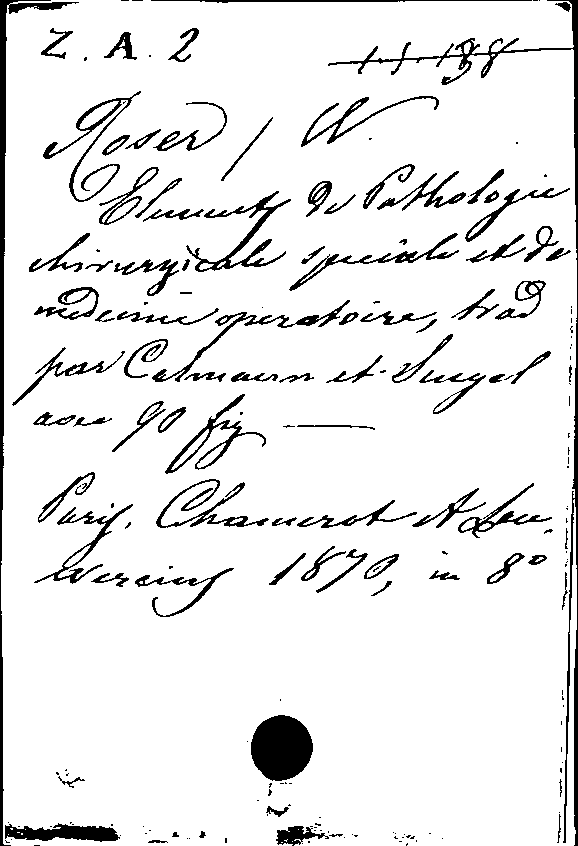 Z. A. 2
1.1.138
Roser / W.
Elements de Pathologie
chirurgicale speciale et de
medecine operatoire, trad
par Culmann et Sengel
avec 90 fig —
Paris. Chamerot et Lau
wereins 1870, in 8°